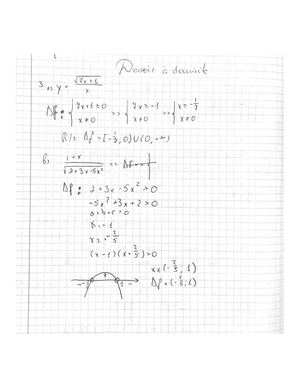 Devoir à domicile
3. a) y = √(7x+1) / x
Df: { 7x+1≥0 => { 7x≥-1 => { x≥-1/7
x≠0 x≠0 x≠0
R/: Df = [-1/7; 0) U (0; +∞)
b) (1+x) / √(2+3x-5x²) =>
Df: 2+3x-5x²>0
-5x²+3x+2>0
a+b+c=0
x₁=1
x₂=-2/5
(x-1)(x+2/5)>0
x∈(-2/5; 1)
Df=(-2/5; 1)